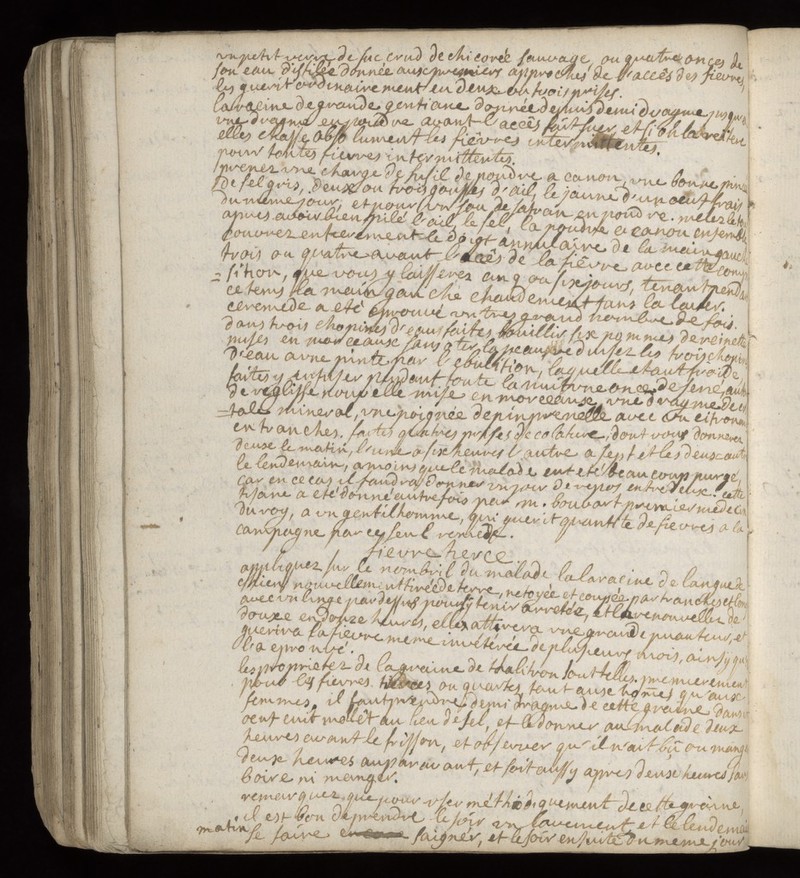 un petit verre de suc crud de chicorée sauvage, ou quatre onces de
son eau distilée donnée aux premiers approches de l'accés des fievres,
les guerit ordinairement en deux ou trois prises.
la racine de grande gentiane donnée depuis demi dragme jusqu'a
une dragme en poudre avant l'accés fait suer, et si on la reitere
elles chasse absolument les fiévres intermittentes.
pour toutes fievres intermittentes.
prenez une charge de fusil de poudre a canon, une bonne pin
de sel gris, deux ou trois gousses d'ail, le jaune d'un oeuf frais
du meme jour, et pour un sou de safran en poudre. melez le to
apres avoir bien pilé l'ail, le sel, la poudre a canon ensemble
couvrez entierement le doigt annulaire de la main gauch
trois ou quatre avant l'accés de la fiévre avec cette compo
= sition, que vous y laisserez cinq ou six jours, tenant penda
ce tems la main gauche chaudement sans la laver.
ce remede a eté eprouvé un tres grand nombre de fois.
dans trois chopines d'eau faites bouillir six pommes de reinette
mises en morceaux sans oter la peau, reduisez les trois chopin
d'eau a une pinte par l'ebulition, laquelle etant froide
faites y infuser pendant toute la nuit une once de sené, au
de reglisse nouvelle mise en morceaux, une dragme de cr
= tale mineral, une poignée de pinprenelle avec un citron
en tranches. faites quatres prises de colature, dont vous donnerez
deux le matin, l'une a six heures l'autre a sept et les deux aut
le lendemain, a moins que le malade eut eté beaucoup purgé,
car en ce cas il faudra donner un jour de repos entre deux. cette
tisane a eté donné autrefois par m. bouvart premier medecin
du roy, a un gentilhomme, qui guerit quantité de fievres a la
campagne par ce seul remede.
fievre tierce
appliquez sur le nombril du malade la la racine de langue de
chien nouvellement tirée de terre, netoyée et coupée par tranches et
avec un linge par dessus pour y tenir arretée, et la renouveller de
douze en douze heures, elle attirera une grande puanteur, et
guerira la fievre meme invétérée de plusieurs mois, ainsy qu
l'a eprouvé.
les proprietez de la graine de thalitron sont telles. premierement
pour les fievres tierces ou quartes, tant aux homes qu'aux
femmes, il faut prendre demi dragme de cette graine dans
oeuf cuit molét au lieu de sel, et le donner au malade deux
heures avant le frisson, et observer qu'il n'ait bû ou mang
deux heures auparavant, et soit aussy apres deux heures san
boire ni manger.
remarquez que pour user méthodiquement de cette graine,
il est bon de prendre le soir un lavement, et le lendemain
matin se faire saigner, et le soir en suite du meme jour